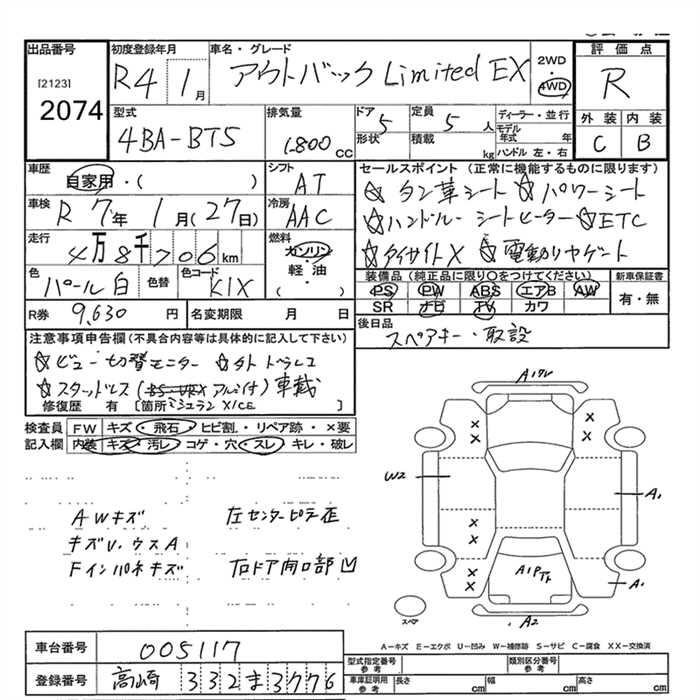 出品番号
[2123]
2074
初度登録年月
R4 1月
車名・グレード
アウトバック Limited EX
2WD
4WD
評価点
R
外装 内装
C B
型式
4BA-BT5
排気量
1800 cc
ドア 5
形状
定員 5 人
積載 kg
ディーラー・並行
モデル年式 年
ハンドル 左・右
車歴
自家用・( )
シフト
AT
セールスポイント (正常に機能するものに限ります)
☆タン革シート ☆パワーシート
☆ハンドル・シートヒーター ☆ETC
☆アイサイトX ☆電動リヤゲート
車検
R7年1月(27日)
冷房
AAC
走行
4万8千706km
燃料
ガソリン
軽・油
( )
色
パール白
色替
色コード
K1X
装備品 (純正品に限り○をつけてください)
PS PW ABS エアB AW
SR ナビ TV カワ
新車保証書
有・無
R券 9,630 円
名変期限 月 日
後日品
スペアキー・取説
注意事項申告欄(不具合内容等は具体的に記入して下さい)
☆ビュー切替モニター ☆外ドラレコ
☆スタッドレス ( アルミ付) 車載
修復歴 有 [箇所 ミシュラン X/CE ]
検査員記入欄
FW キズ・飛石・ヒビ割・リペア跡・×要
内装 キズ・汚レ・コゲ・穴・スレ・キレ・破レ
AWキズ
キズU.ウスA
Fインパネキズ
左センターピラー歪
右ドア開口部凹
A1グリル
W2
A1
A1
A1P Tr
A2
スペア
A-キズ E-エクボ U-凹み W-補修跡 S-サビ C-腐食 XX-交換済
車台番号 005117
登録番号 高崎 332ま3776
型式指定番号
参考
類別区分番号
参考
車庫証明用
参考
長さ cm 幅 cm 高さ cm